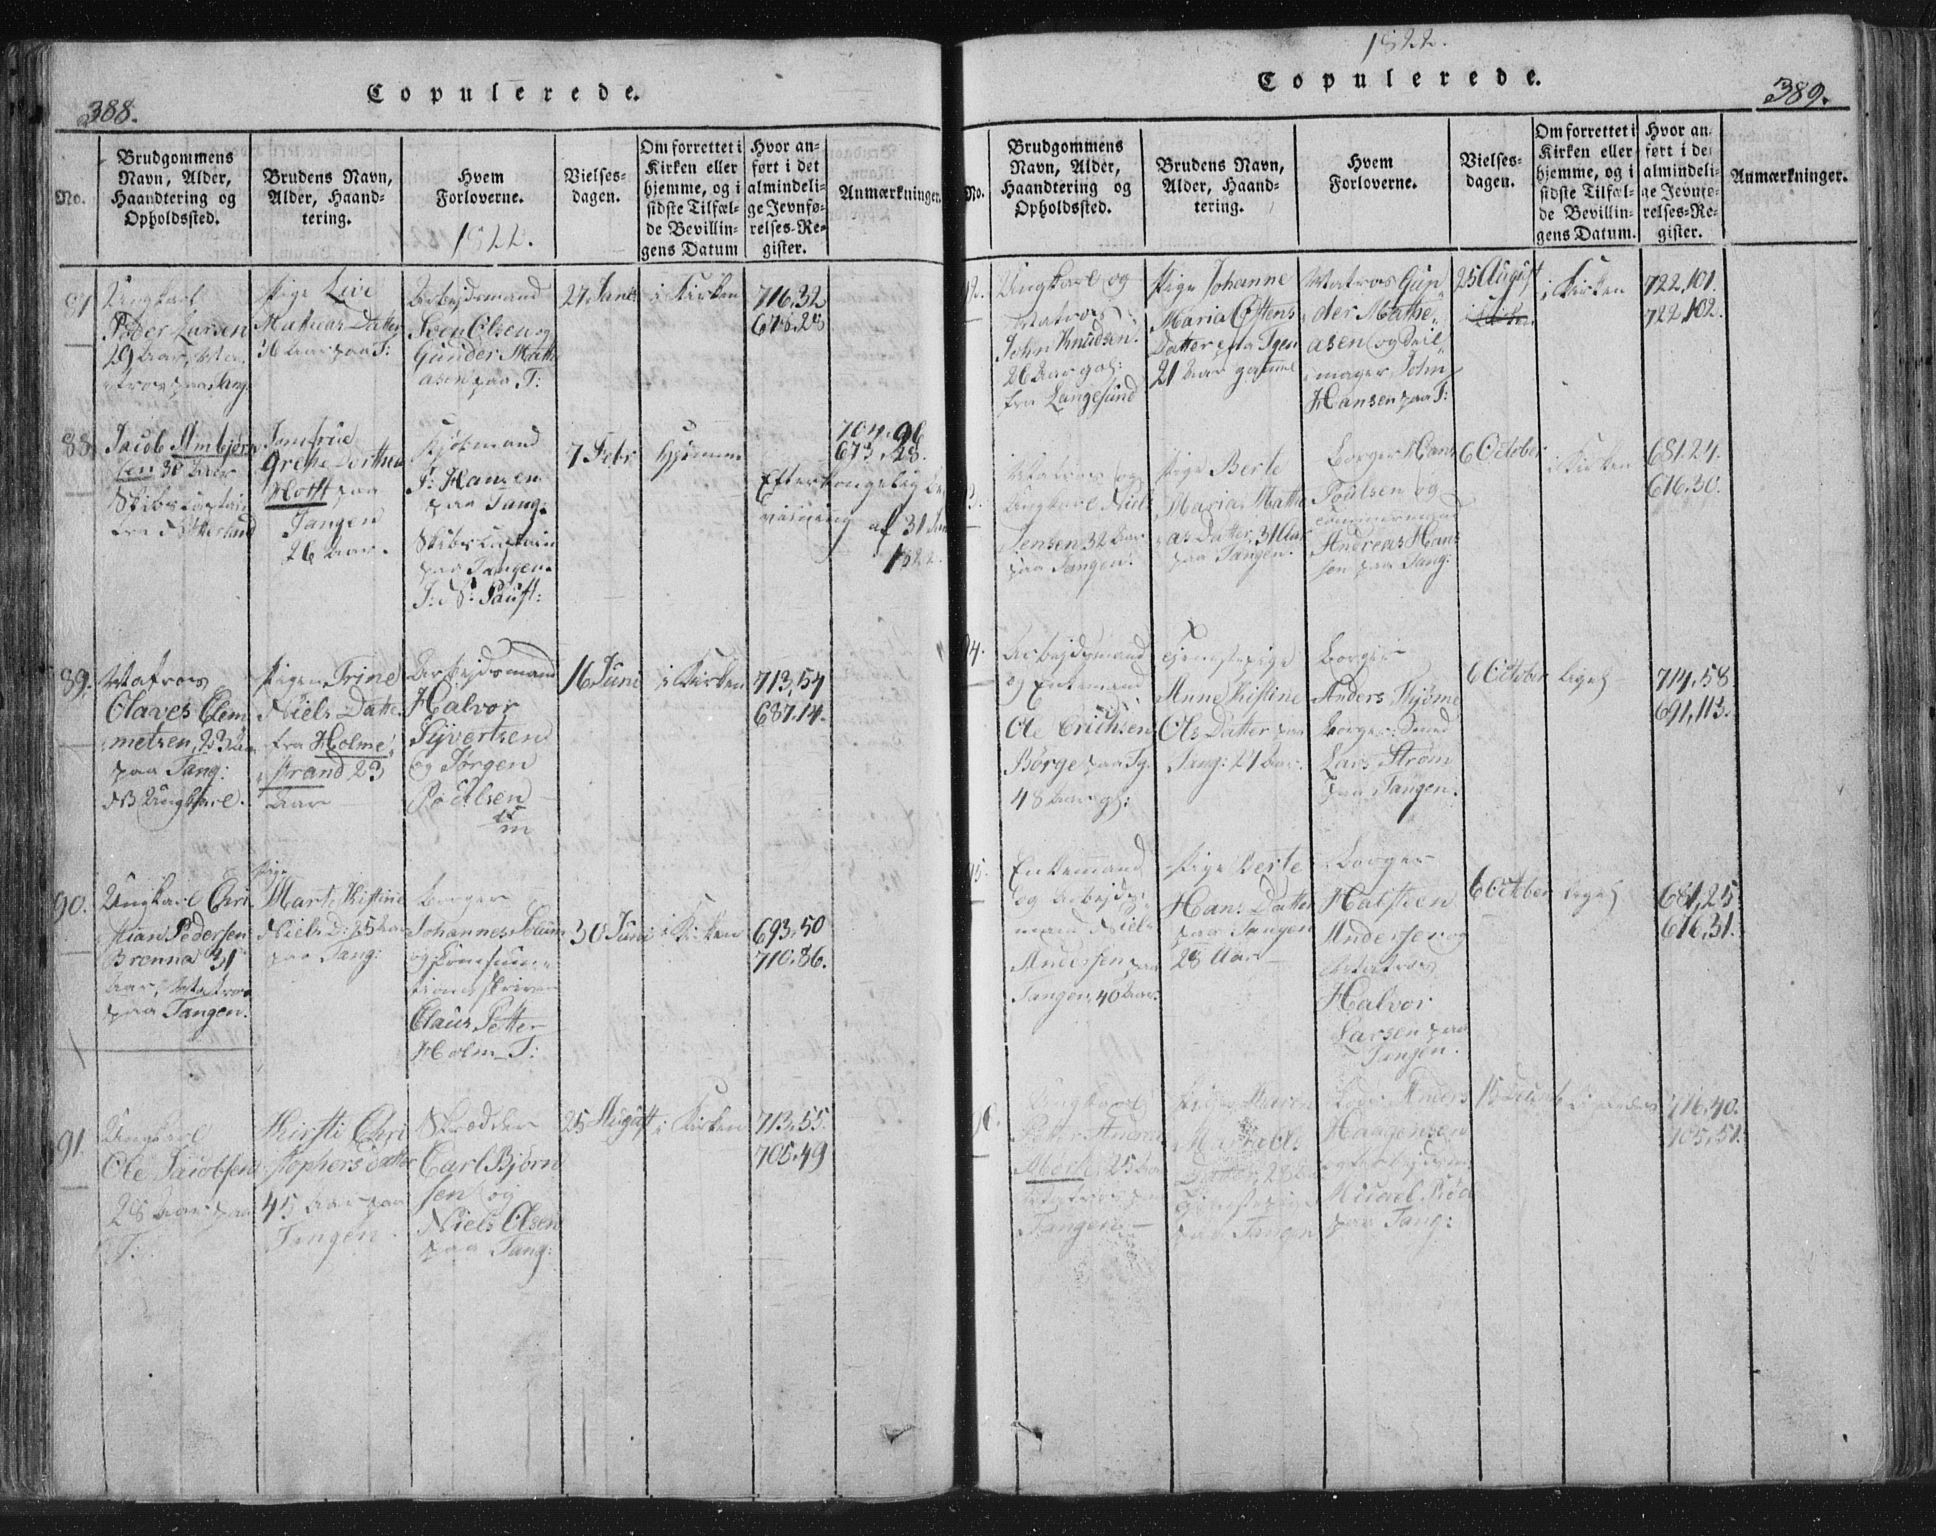 388.
Copulerede.
No.
Brudgommens
Navn, Alder,
Haandtering og
Opholdssted.
Brudens Navn,
Alder, Haand-
tering.
Hvem
Forloverne.
1822.
Vielses-
dagen.
Om forrettet i
Kirken eller
hjemme, og i
sidste Tilfæl-
de Bevillin-
gens Datum
Hvor an-
ført i det
almindeli-
ge Jevnfø-
relses-Re-
gister.
Anmærkninger.
87
Ungkarl
Peder Larsen
29 Aar, Ma
tros paa Tang:
Pige Live
Mathias Datter
36 Aar paa T:
Arbejdsmand
Sven Olsen og
Gunder Math
asen paa T:
27 Janr
i Kirken
716.32
678.28
88
Jacob Ambjørn
sen 30 Aar
Skibscaptain
fra Østerland
Jomfrue
Grethe Dorthea
Hofft paa
Tangen
26 Aar.
Kjøbmand
J: Hansen
paa Tang.
Skibscaptain
paa Tangen.
J: N: Paust:
7 Febr
hjemme
704.96
673.28.
Efter kongelig be
vilgning
af 31 Jan
1822.
89.
Matros
Olaves Clem
metsen, 23 Aar
paa Tang:
NB Ungkarl.
Pigen Trine
Niels Datter
fra Holme
strand 23
Aar
Arbejdsmand
Halvor
Syvertsen
og Jørgen
Poulsen
16 Juni
i Kirken
713,54
687.14.
90.
Ungkarl Chri
stian Pedersen
Brenna 31
Aar, Matros
paa Tangen.
Pige
Mart: Kistine
Niels D: 25 Aar
paa Tang:
Borger
Johannes Blum
og Consum-
tionsskriver
Claus Petter
Holm T:
30 Juni
i Kirken
693,50
710.86.
91.
Ungkarl
Ole Jacobsen
28 Aar paa
T:
Kirsti Chri
stophers Datter
45 Aar paa
Tangen.
Skredder
Carl Bjørn
sen og
Niels Olsen
paa Tang:
25 August
i Kirken
713.55.
705.49
1822.
Copulerede.
389.
No.
Brudgommens
Navn, Alder,
Haandtering og
Opholdssted.
Brudens Navn,
Alder, Haand-
tering.
Hvem
Forloverne.
Vielses-
dagen.
Om forrettet i
Kirken eller
hjemme, og i
sidste Tilfæl-
de Bevillin-
gens Datum.
Hvor an-
ført i det
almindeli-
ge Jevnfø-
relses-Re-
gister.
Anmærkninger.
92.
Ungkarl og
Matros
John Knudsen.
26 Aar gal:
fra Langesund
Pige Johanne
Maria Ottens
Datter paa Tgen
21 Aar gammel
Matros Gun
der Mathi
asen og Seil
mager John
Hansen paa T:
25 August
i Kirken
722,101.
722,102.
93.
Matros og
Ungkarl Niels
Jensen 32 Aar
paa Tangen.
Pige Berte
Maria Mathi
as Datter, 31 Aar
paa Tangen.
Borger Hans
Poulsen og
Tømmermand
Andreas Han
sen paa Tang:
6 October
i Kirken
681.24.
616.30.
94.
Arbejdsmand
og Enkemand
Ole Erichsen
Børge paa Tg.
48 Aar gl:
Tjenestepige
Anne Kistine
Ols Datter paa
Tang: 24 Aar.
Borger
Anders Thjøme
Borger: Smed
Lars Strøm
paa Tangen.
6 October
714,58
691,113.
95.
Enkemand
og Arbejds-
mand Niels
Andersen paa
Tangen, 40 Aar.
Pige Berte
Hans Datter
paa Tangen
28 Aar
Borger
Halsteen
Andersen og
Matros
Halvor
Larsen paa
Tangen.
6 October
681,25
616,31.
96.
Ungkarl
Peter Andreas
Mork, 25 Aar
Matros paa
Tangen.
Pige Maren
Datter, 28 Aar
Tjenestepige
paa Tangen
Anders
Haagensen
og Arbejdsm
Michael Rød
paa Tang:
716,40.
705,51.